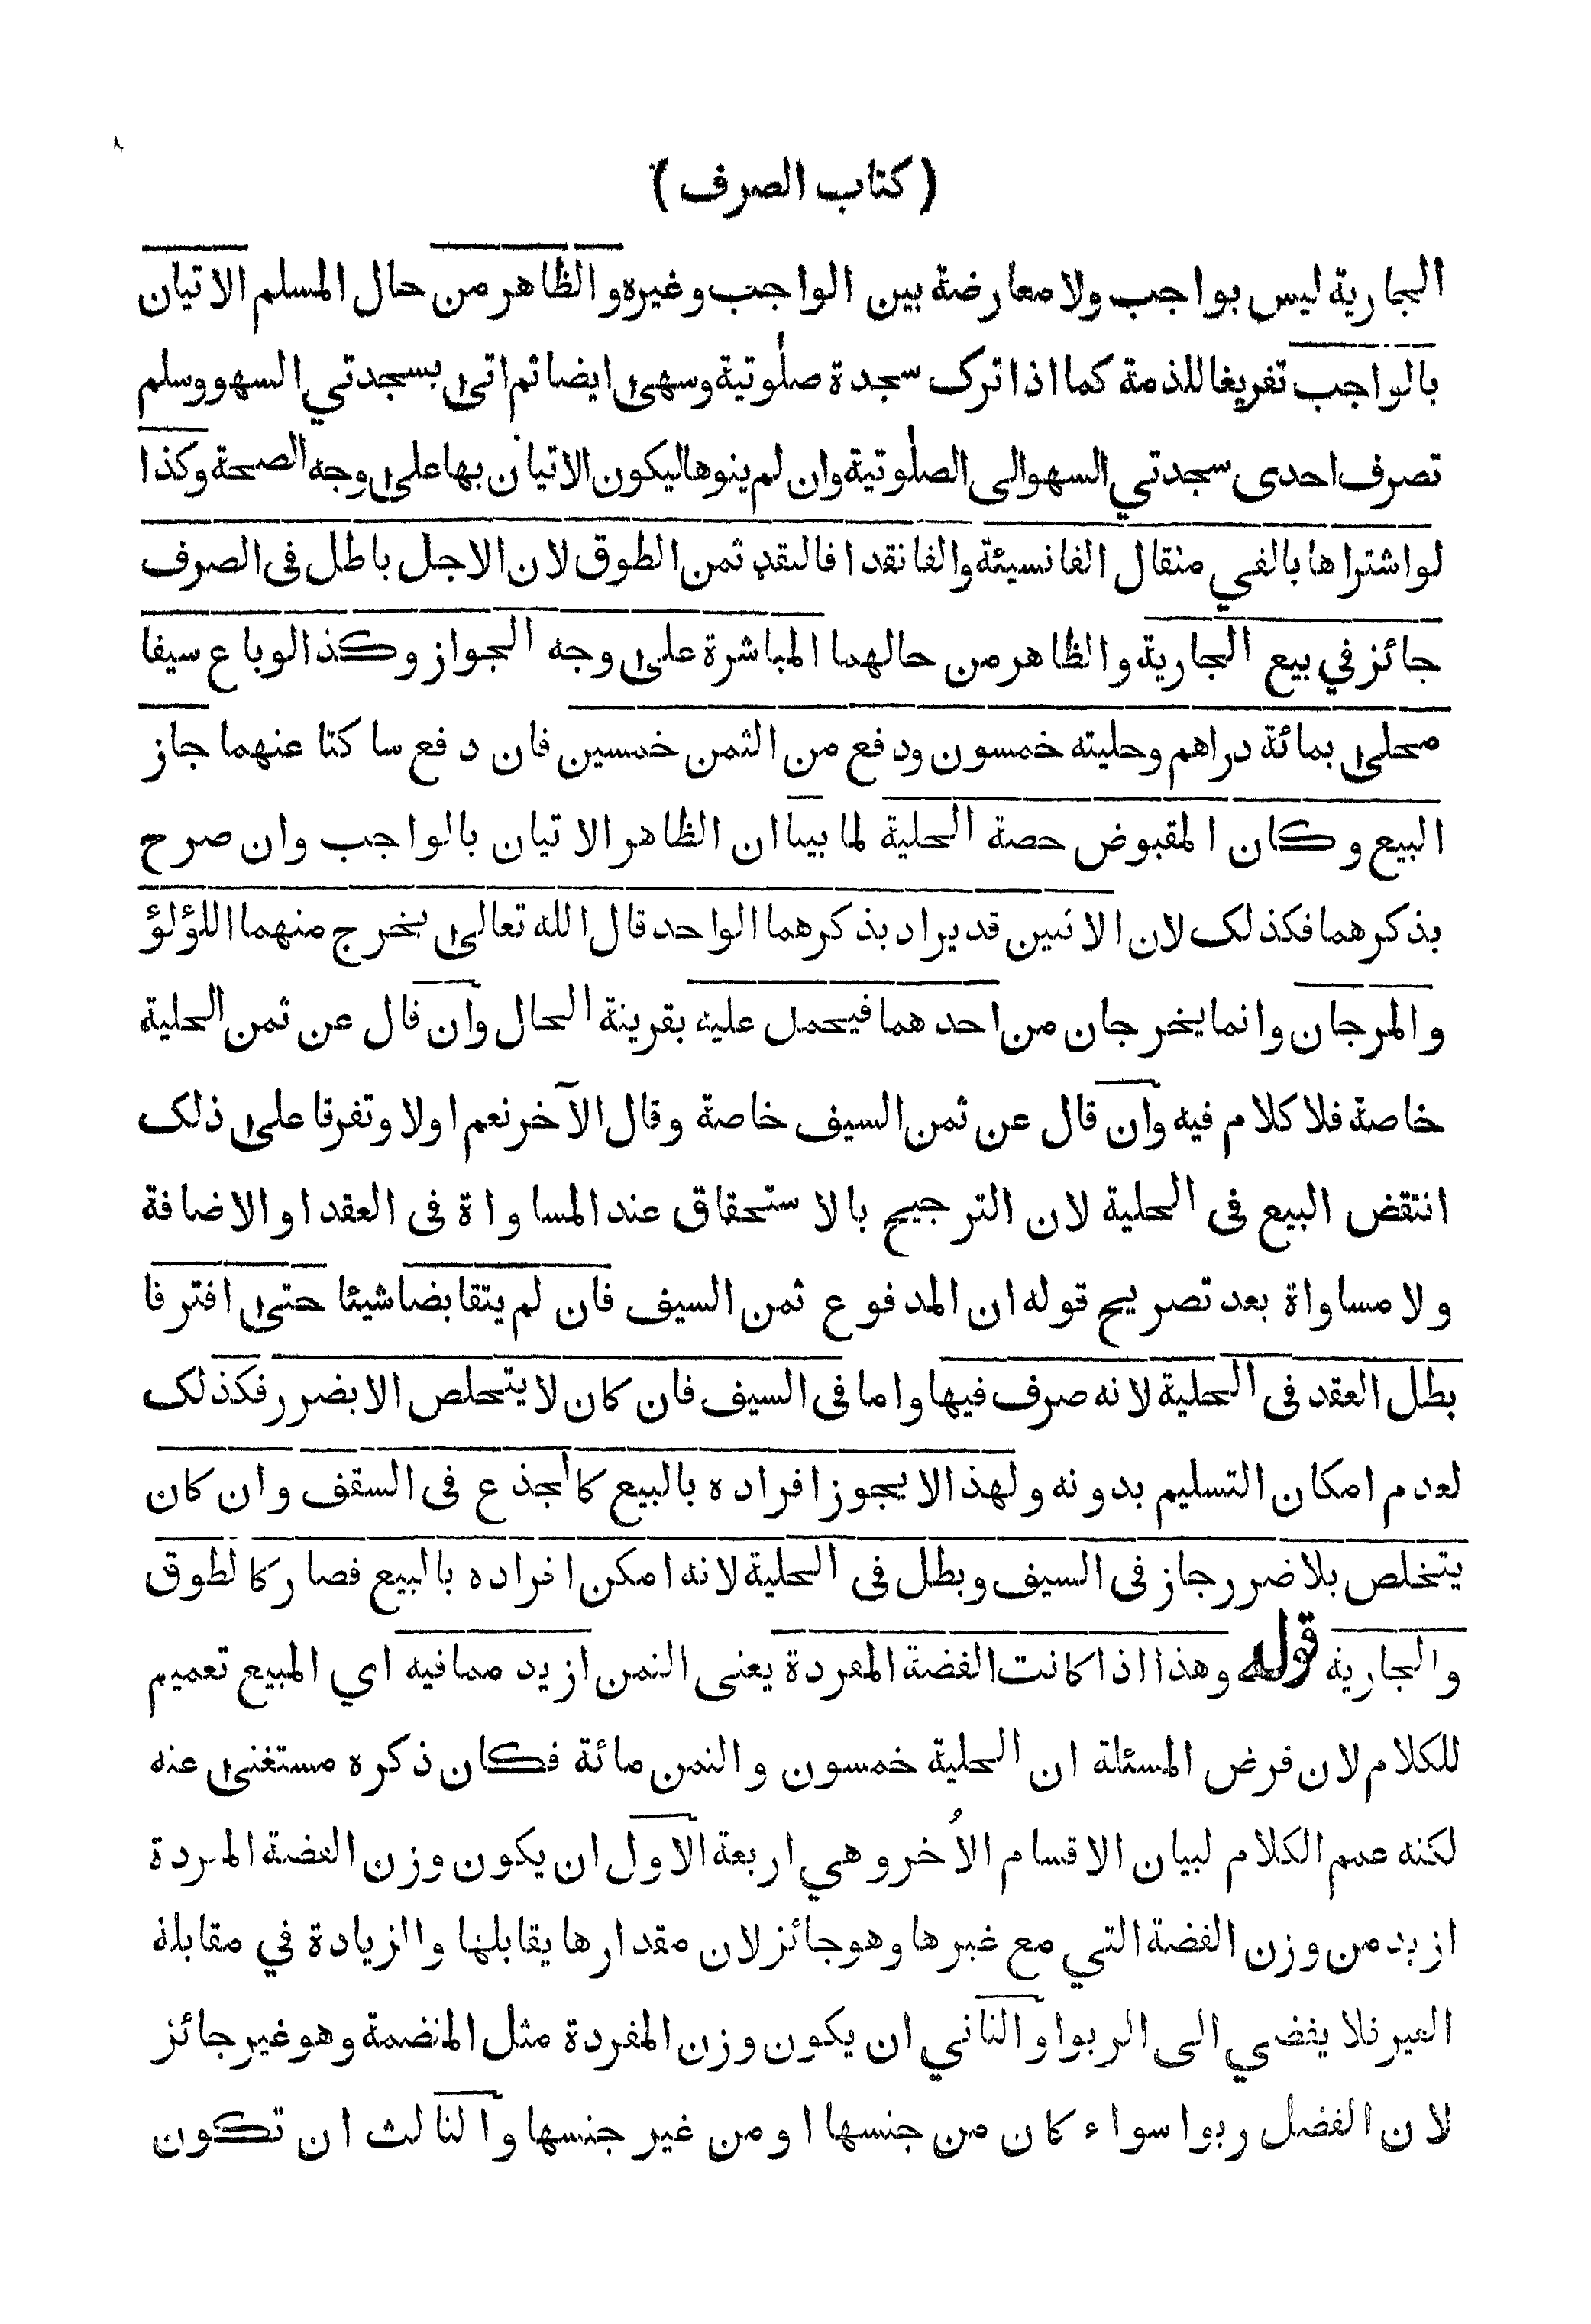 ( كتاب الصرف )
الجارية ليس بواجب ولا معارضة بين الواجب وغيره والظاهر من حال المسلم الاتيان
بالواجب تفريغا للذمة كما اذا ترك سجدة صلوتية وسهى ايضا ثم اتى بسجدتي السهو وسلم
تصرف احدى سجدتي السهو الى الصلوتية وان لم ينوها ليكون الاتيان بها على وجه الصحة وكذا
لو اشتراها بالفي مثقال الفا نسيئة والفا نقدا فالنقد ثمن الطوق لان الاجل باطل فى الصرف
جائز في بيع الجارية والظاهر من حالهما المباشرة على وجه الجواز وكذا لو باع سيفا
محلى بمائة دراهم وحليته خمسون ودفع من الثمن خمسين فان دفع ساكتا عنهما جاز
البيع وكان المقبوض حصة الحلية لما بينا ان الظاهر الاتيان بالواجب وان صرح
بذكرهما فكذلك لان الاثنين قد يراد بذكرهما الواحد قال الله تعالى يخرج منهما اللؤلؤ
والمرجان وانما يخرجان من احدهما فيحمل عليه بقرينة الحال وان قال عن ثمن الحلية
خاصة فلا كلام فيه وان قال عن ثمن السيف خاصة وقال الآخر نعم اولا وتفرقا على ذلك
انتقض البيع فى الحلية لان الترجيح بالاستحقاق عند المساواة فى العقد او الاضافة
ولا مساواة بعد تصريح قوله ان المدفوع ثمن السيف فان لم يتقابضا شيئا حتى افترفا
بطل العقد فى الحلية لانه صرف فيها واما فى السيف فان كان لا يتخلص الا بضرر فكذلك
لعدم امكان التسليم بدونه ولهذا لا يجوز افراده بالبيع كالجذع فى السقف وان كان
يتخلص بلا ضرر جاز فى السيف وبطل فى الحلية لانه امكن افراده بالبيع فصار كالطوق
والجارية قوله وهذا اذا كانت الفضة المفردة يعنى الثمن ازيد ممافيه اي المبيع تعميم
للكلام لان فرض المسئلة ان الحلية خمسون والثمن مائة فكان ذكره مستغنى عنه
لكنه عمم الكلام لبيان الاقسام الأُخر وهي اربعة الاول ان يكون وزن الفضة المفردة
ازيد من وزن الفضة التي مع غيرها وهو جائز لان مقدارها يقابلها والزيادة في مقابلة
الغير فلا يفضي الى الربوا والثاني ان يكون وزن المفردة مثل المنضمة وهو غير جائز
لان الفضل ربوا سواء كان من جنسها او من غير جنسها والثالث ان تكون